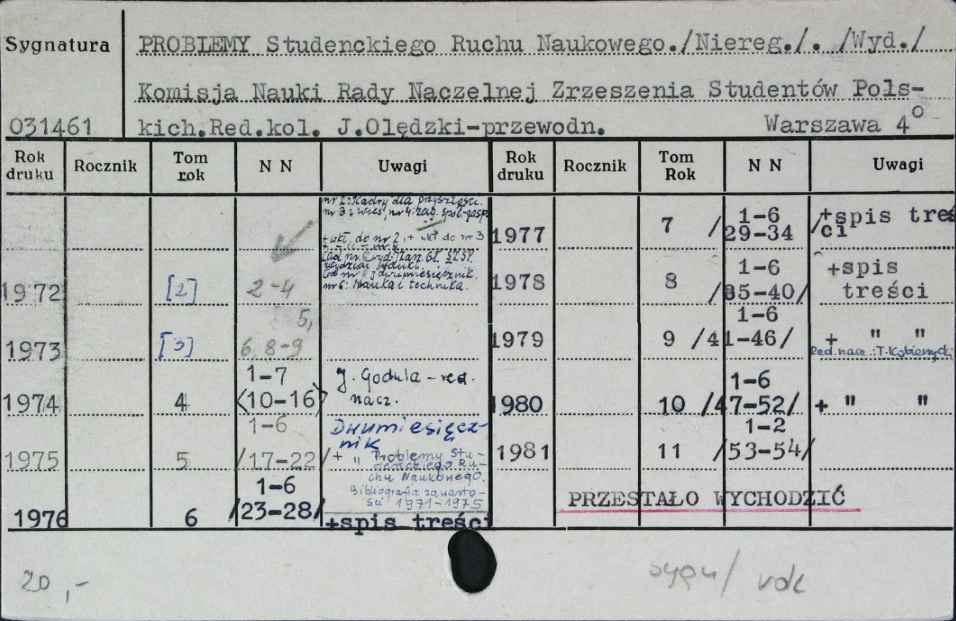 Sygnatura
PROBLEMY Studenckiego Ruchu Naukowego./Niereg./. /Wyd./
Komisja Nauki Rady Naczelnej Zrzeszenia Studentów Pols-
031461 kich.Red.kol. J.Olędzki-przewodn. Warszawa 4°
Rok druku Rocznik Tom rok N N Uwagi Rok druku Rocznik Tom Rok N N Uwagi
nr 2: Kadry dla przyszłości.
nr 3: wieś, nr 4: zag. społ-gosp
+ wkł. do nr 2, + wkł do nr 3
nr 6: Nauka i technika.
1972 [2] 2-4
5,
1973 [3] 6, 8-9
1-7
1974 4 <10-16> J. Godula - red.
nacz.
1-6 Dwumiesięcz-
nik
1975 5 /17-22/ + " Problemy Stu-
denckiego Ru-
chu Naukowego.
Bibliografia zawarto-
ści 1971-1975
1-6
1976 6 /23-28/ +spis treści
1-6
1977 7 /29-34 /+spis treści
1-6
1978 8 /35-40/ +spis
treści
1-6
1979 9 /41-46/ + " "
Red. nacz.: T.
1-6
1980 10 /47-52/ + " "
1-2
1981 11 /53-54/
PRZESTAŁO WYCHODZIĆ
20,-